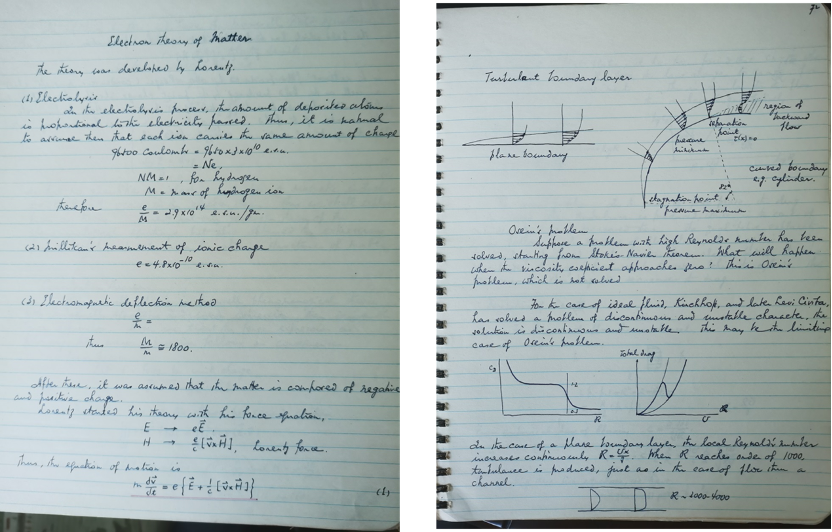 Electron theory of Matter
The theory was developed by Lorentz.
(1) Electrolysis
In the electrolysis process, the amount of deposited atoms
is proportional to the electricity passed. Thus, it is natural
to assume then that each ion carries the same amount of charge
96500 Coulombs = 9650 × 3 × 10¹⁰ e.s.u.
= Ne,
NM = 1, for hydrogen
M = mass of hydrogen ion
therefore e/M = 2.9 × 10¹⁴ e.s.u./gr.
(2) Millikan's measurement of ionic charge
e = 4.8 × 10⁻¹⁰ e.s.u.
(3) Electromagnetic deflection method
e/m =
thus M/m ≅ 1800.
After these, it was assumed that the matter is composed of negative
and positive charge.
Lorentz started his theory with his force equation,
E → eE⃗.
H → e/c [v⃗×H⃗], Lorentz force.
Thus, the equation of motion is
m dv⃗/dt = e{E⃗ + 1/c [v⃗×H⃗]}
(1)
72
Turbulent boundary layer
plane boundary
separation
point
region of
backward
flow
pressure
minimum
curved boundary
e.g. cylinder.
stagnation point
pressure maximum
Oseen's problem
Suppose a problem with high Reynolds number has been
solved, starting from Stokes Navier theorem. What will happen
when the viscosity coefficient approaches zero? This is Oseen's
problem, which is not solved
For the case of ideal fluid, Kirchhoff, and late Levi Civita,
has solved a problem of discontinuous and unstable character. the
solution is discontinuous and unstable. This may be the limiting
case of Oseen's problem.
Total drag
R
U
In the case of a plane boundary layer, the local Reynold's number
increases continuously R = Ux/ν. When R reaches order of 1000,
turbulence is produced, just as in the case of flow thru a
channel.
R ~ 1000-4000